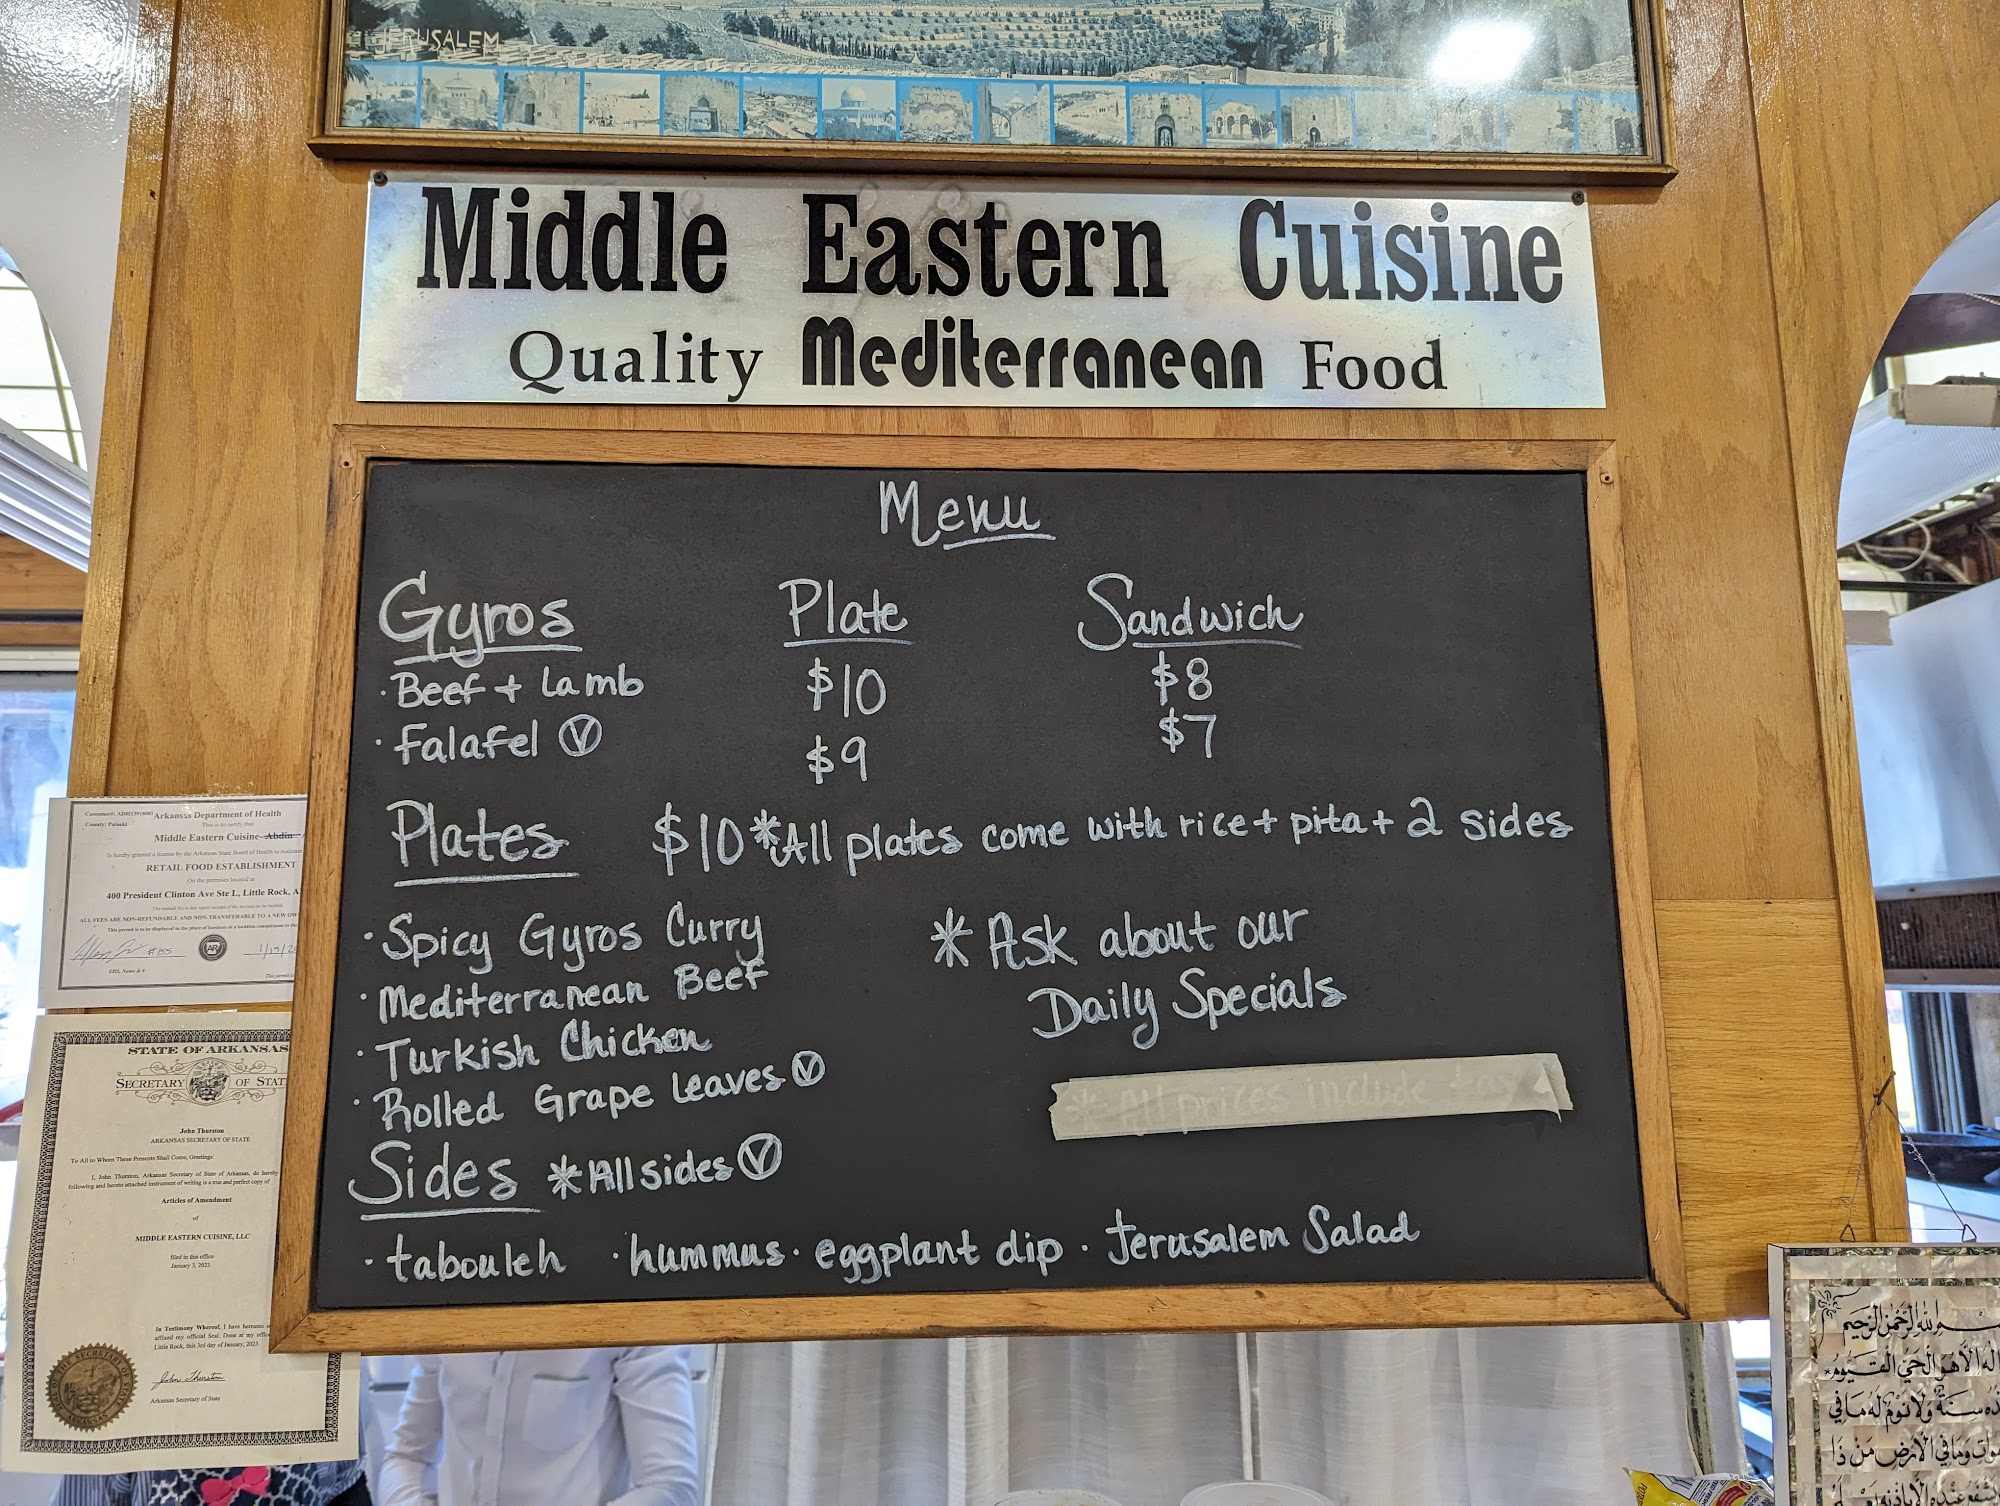 JERUSALEM
Middle Eastern Cuisine
Quality Mediterranean Food
Menu
Gyros Plate Sandwich
· Beef + Lamb $10 $8
· Falafel Ⓥ $9 $7
Plates $10 *All plates come with rice + pita + 2 sides
· Spicy Gyros Curry
· Mediterranean Beef
· Turkish Chicken
· Rolled Grape Leaves Ⓥ
* Ask about our
Daily Specials
* All prices include
Sides *All sides Ⓥ
· tabouleh · hummus · eggplant dip · Jerusalem Salad
Arkansas Department of Health
County: Pulaski
This is to certify that
Middle Eastern Cuisine Abdin
Is hereby granted a license by the Arkansas State Board of Health to maintain
RETAIL FOOD ESTABLISHMENT
On the premises located at
400 President Clinton Ave Ste L, Little Rock, A
ALL FEES ARE NON-REFUNDABLE AND NON-TRANSFERABLE TO A NEW OW
STATE OF ARKANSAS
SECRETARY OF STAT
John Thurston
ARKANSAS SECRETARY OF STATE
To All to Whom These Presents Shall Come, Greetings:
I, John Thurston, Arkansas Secretary of State of Arkansas, do hereby
following and hereto attached instrument of writing is a true and perfect copy of
Articles of Amendment
of
MIDDLE EASTERN CUISINE, LLC
filed in this office
January 3, 2023.
In Testimony Whereof, I have hereunto
affixed my official Seal. Done at my office
Little Rock, this 3rd day of January, 2023.
John Thurston
Arkansas Secretary of State
الله الرحمن الرحيم
إلا هو الحي القيوم
سنة ولا نوم له ما في
وما في الأرض من ذا